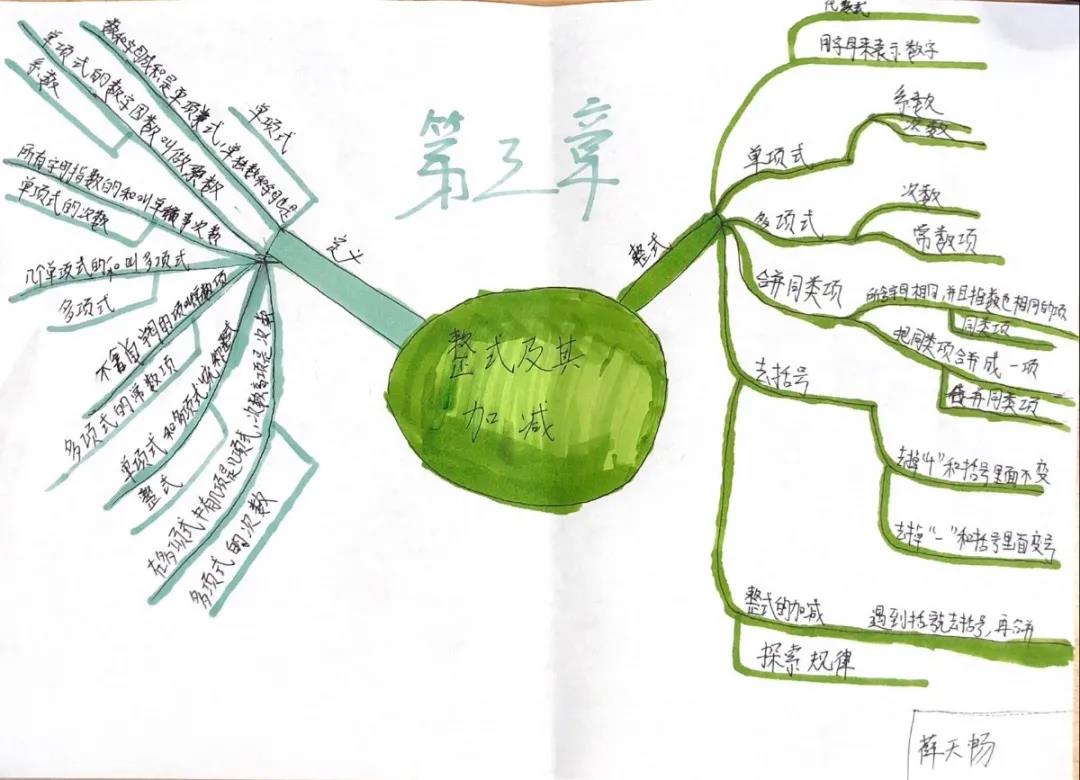 第三章
整式及其
加减
定义
数和字母成积是单项式,单独数和字母也是
单项式
单项式的数字因数叫做系数
系数
所有字母指数的和叫单项式次数
单项式的次数
几个单项式的和叫多项式
多项式
不含自母的项叫常数项
多项式的常数项
单项式和多项式统称整式
整式
在多项式中有几项是几项式,次数高项是次数
多项式的次数
整式
代数式
用字母来表示数字
单项式
系数
次数
多项式
次数
常数项
合并同类项
所含字母相同,并且指数也相同的项
同类项
把同类项合并成一项
合并同类项
去括号
去掉“+”和括号里面不变
去掉“-”和括号里面变号
整式的加减
遇到括就去括号,再合并
探索规律
薛天畅